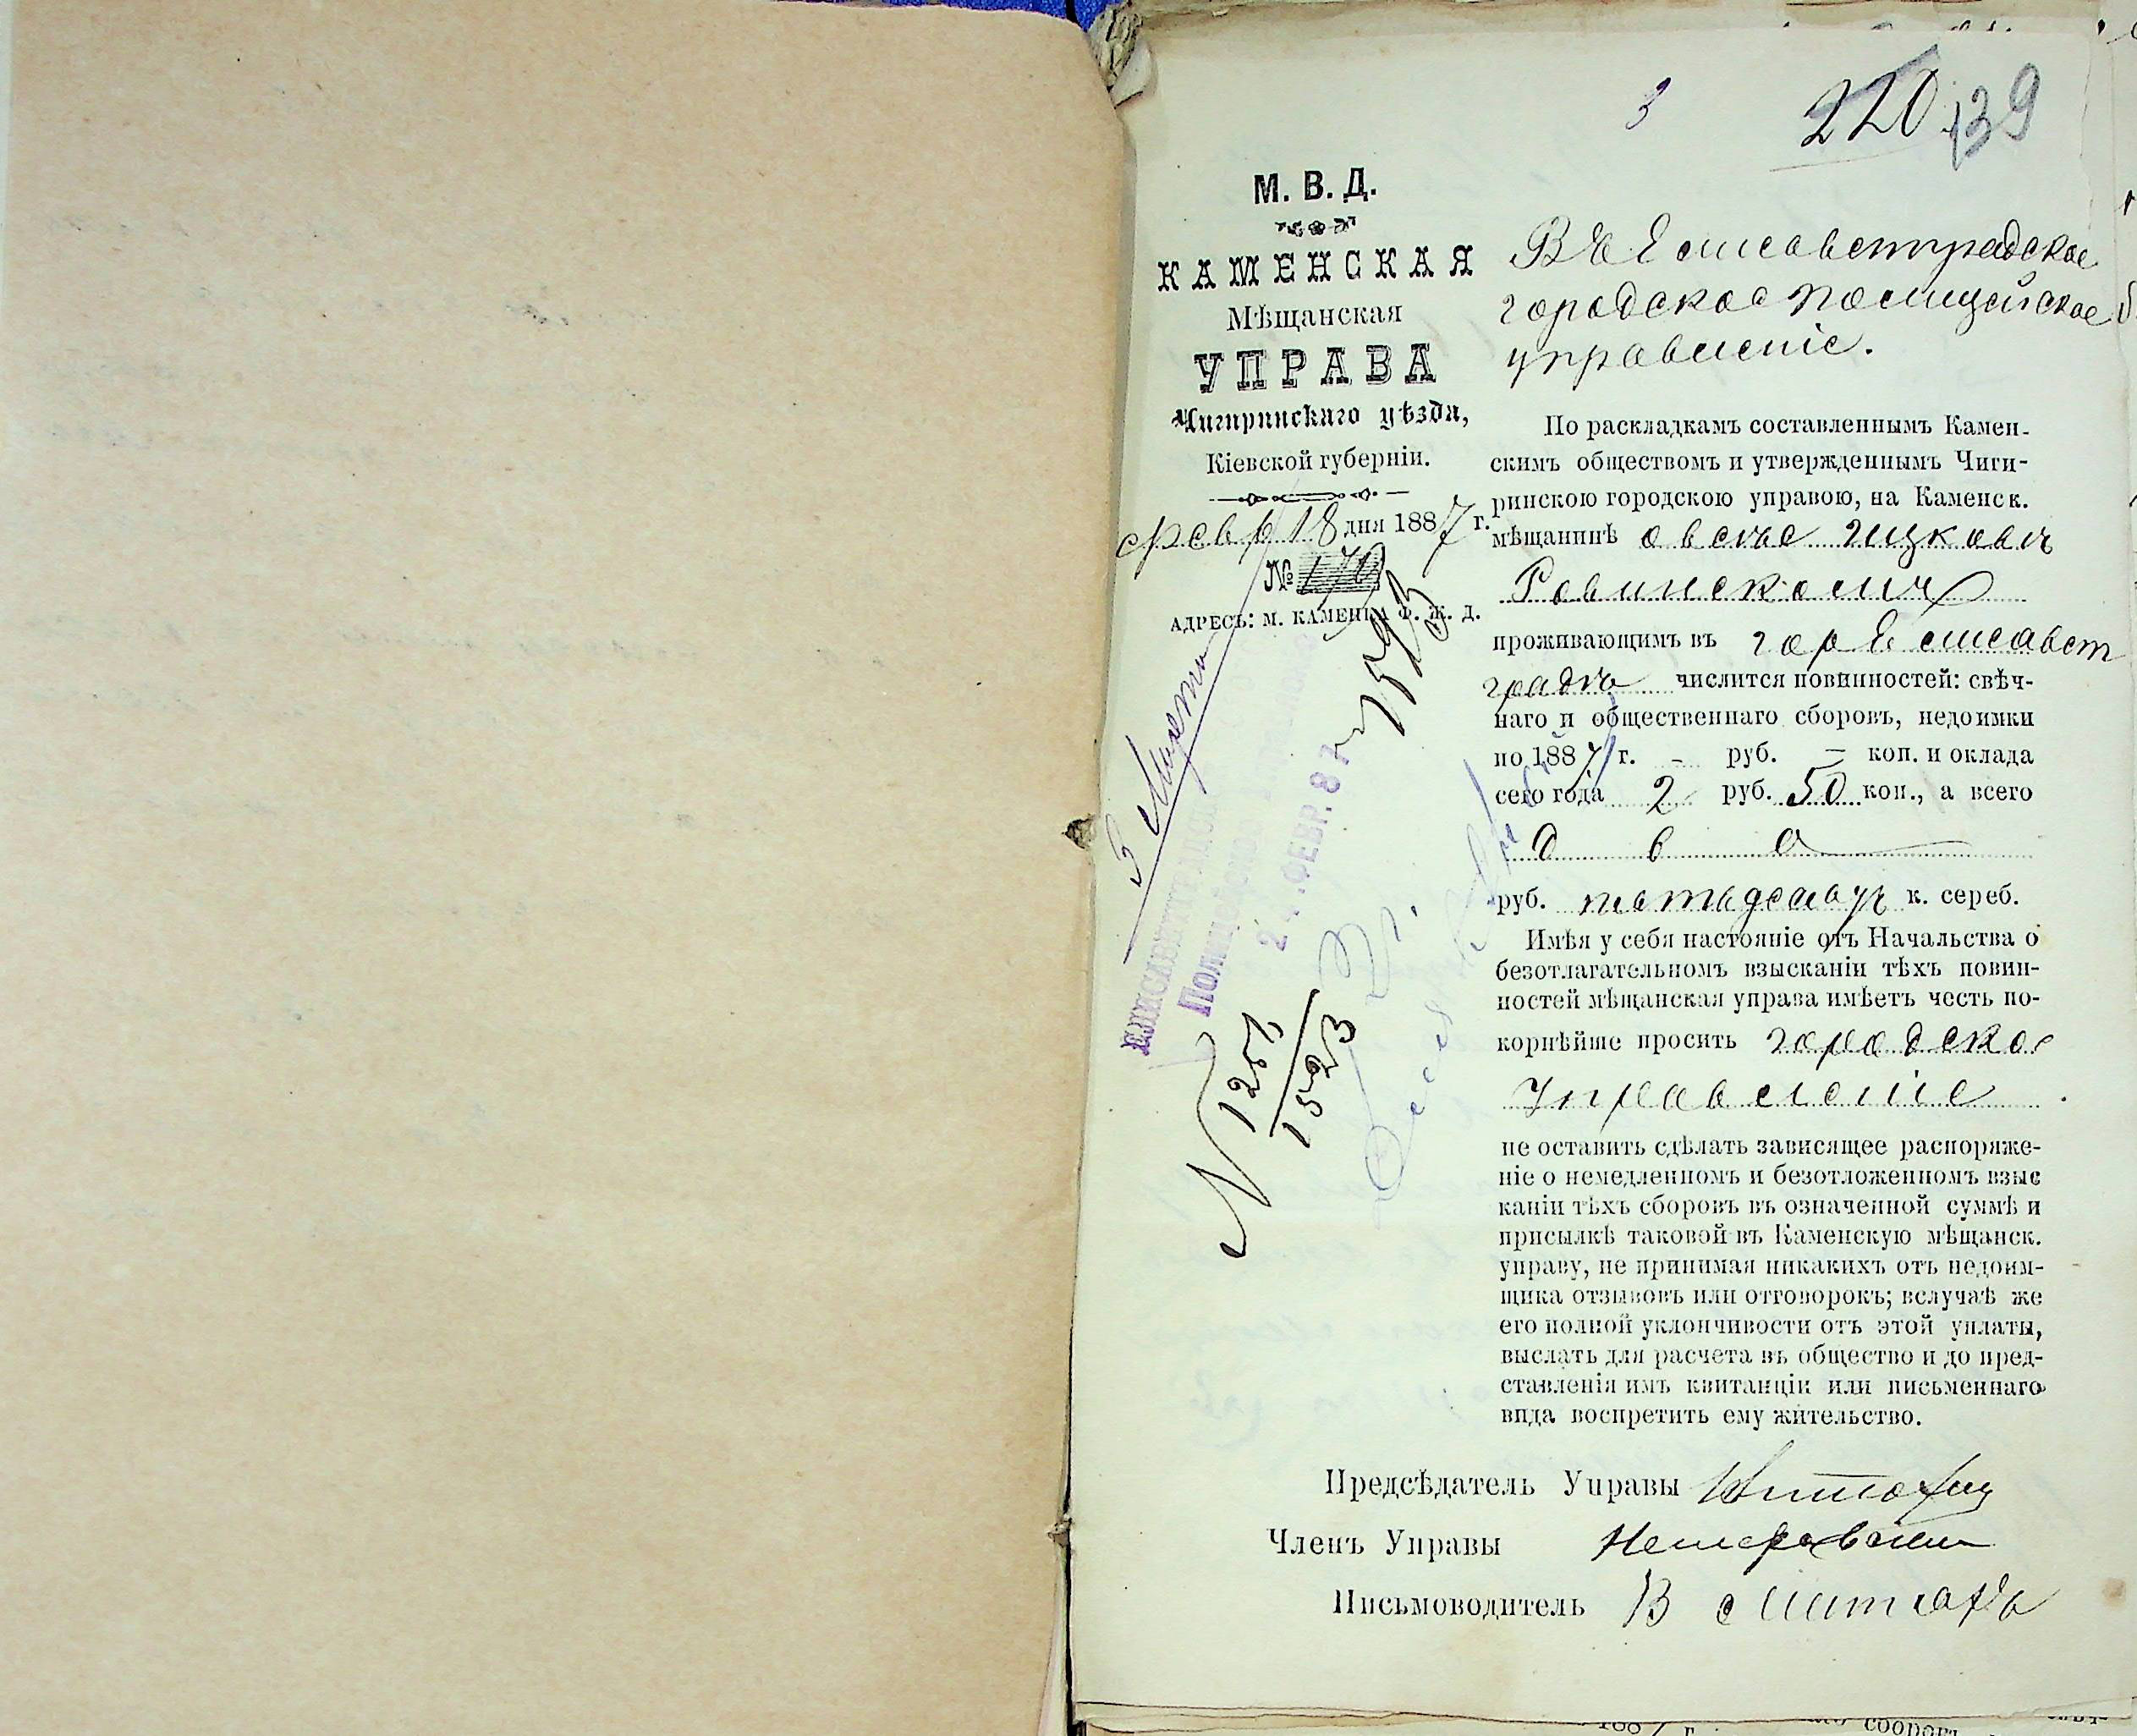 3
220 139
М. В. Д.
КАМЕНСКАЯ
Мѣщанская
УПРАВА
Чигиринскаго уѣзда,
Кіевской губерніи.
февр 18 дня 1887 г.
№ 170
АДРЕСЪ: М. КАМЕНКА Ф. Ж. Д.
3 Марта
Полицейское
24 ФЕВР. 87
№ 1251
1523
Въ Елисаветградское
городское полицейское
управленіе.
По раскладкамъ составленнымъ Камен-
скимъ обществомъ и утвержденнымъ Чиги-
ринскою городскою управою, на Каменск.
мѣщанинѣ Овсѣе Ицковѣ
Ровинскомъ
проживающимъ въ гор Елисавет
градѣ числится повинностей: свѣч-
наго и общественнаго сборовъ, недоимки
по 1887 г. - руб. — коп. и оклада
сего года 2 руб. 50 коп., а всего
два
руб. пятьдесятъ к. сереб.
Имѣя у себя настояніе отъ Начальства о
безотлагательномъ взысканіи тѣхъ повин-
ностей мѣщанская управа имѣетъ честь по-
корнѣйше просить городское
Управленіе
не оставить сдѣлать зависящее распоряже-
ніе о немедленномъ и безотложенномъ взыс
каніи тѣхъ сборовъ въ означенной суммѣ и
присылкѣ таковой въ Каменскую мѣщанск.
управу, не принимая никакихъ отъ недоим-
щика отзывовъ или отговорокъ; вслучаѣ же
его полной уклончивости отъ этой уплаты,
выслать для расчета въ общество и до пред-
ставленія имъ квитанціи или письменнаго
вида воспретить ему жительство.
Предсѣдатель Управы
Членъ Управы
Письмоводитель В